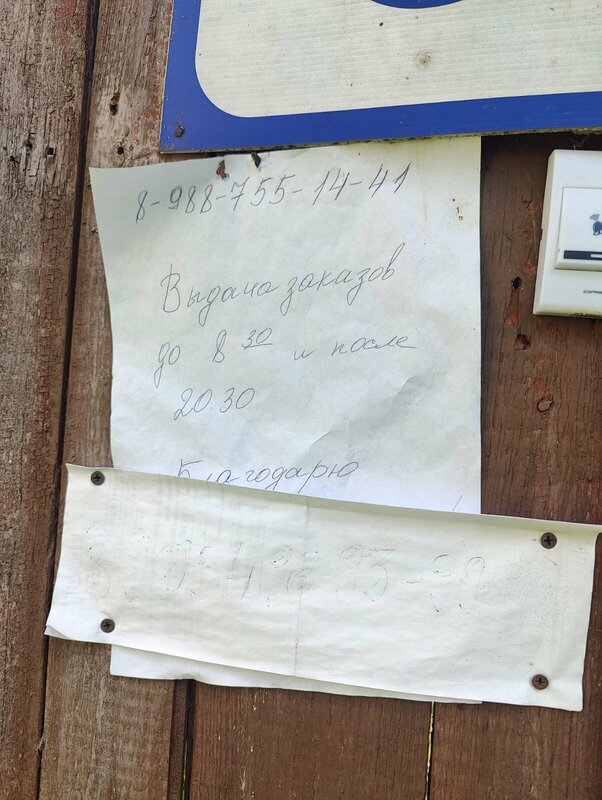 8-988-755-14-41
Выдача заказов
до 8 30 и после
20.30
Благодарю